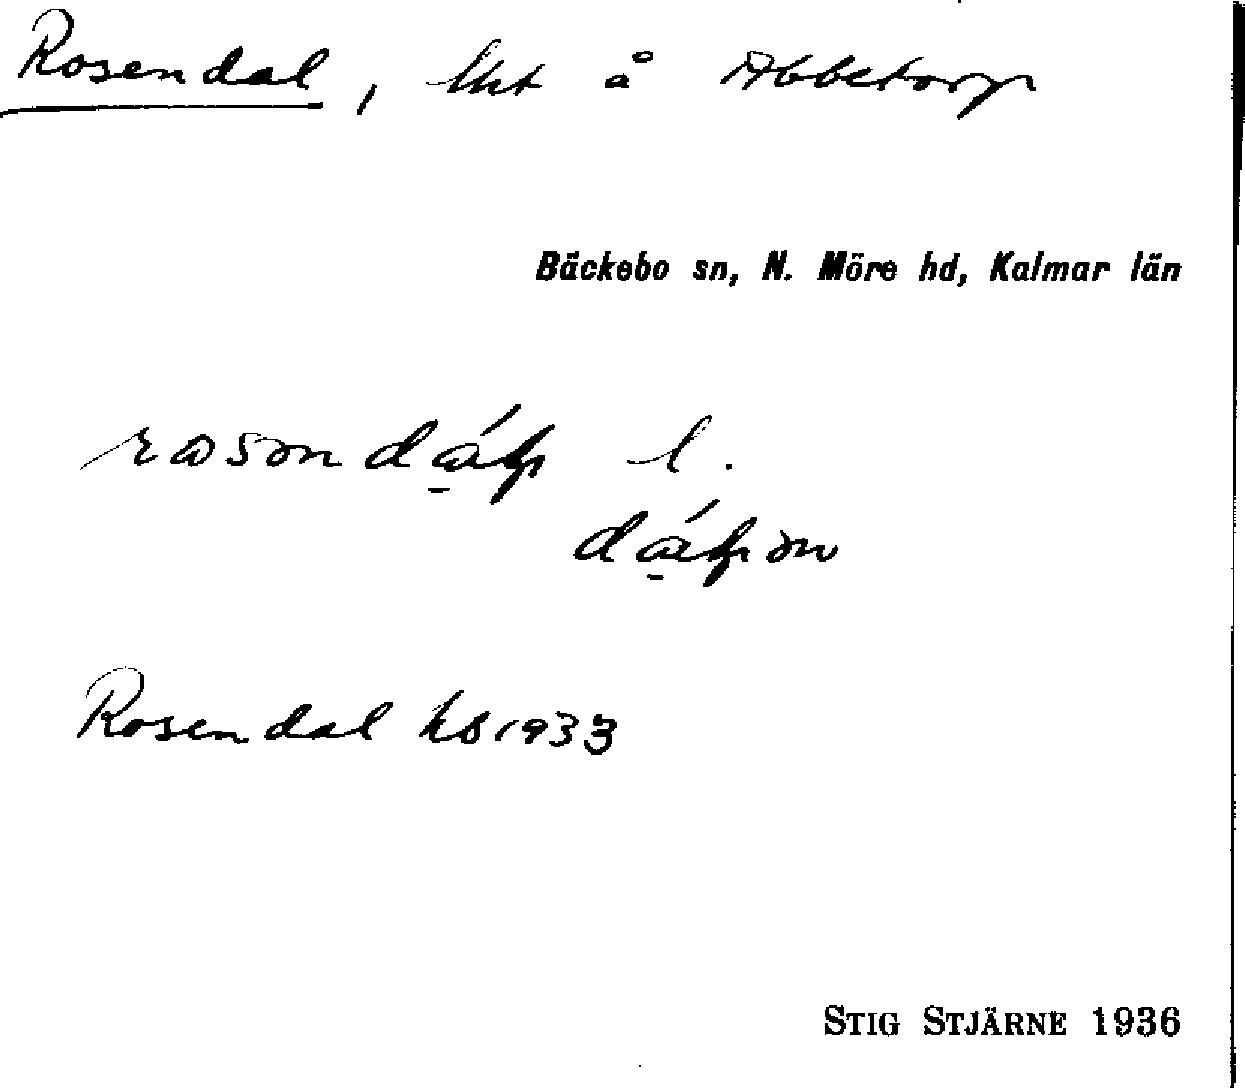 Rosendal, lht å Abbetorp
Bäckebo sn, N. Möre hd, Kalmar län
l.
Rosendal hs 1933
STIG STJÄRNE 1936